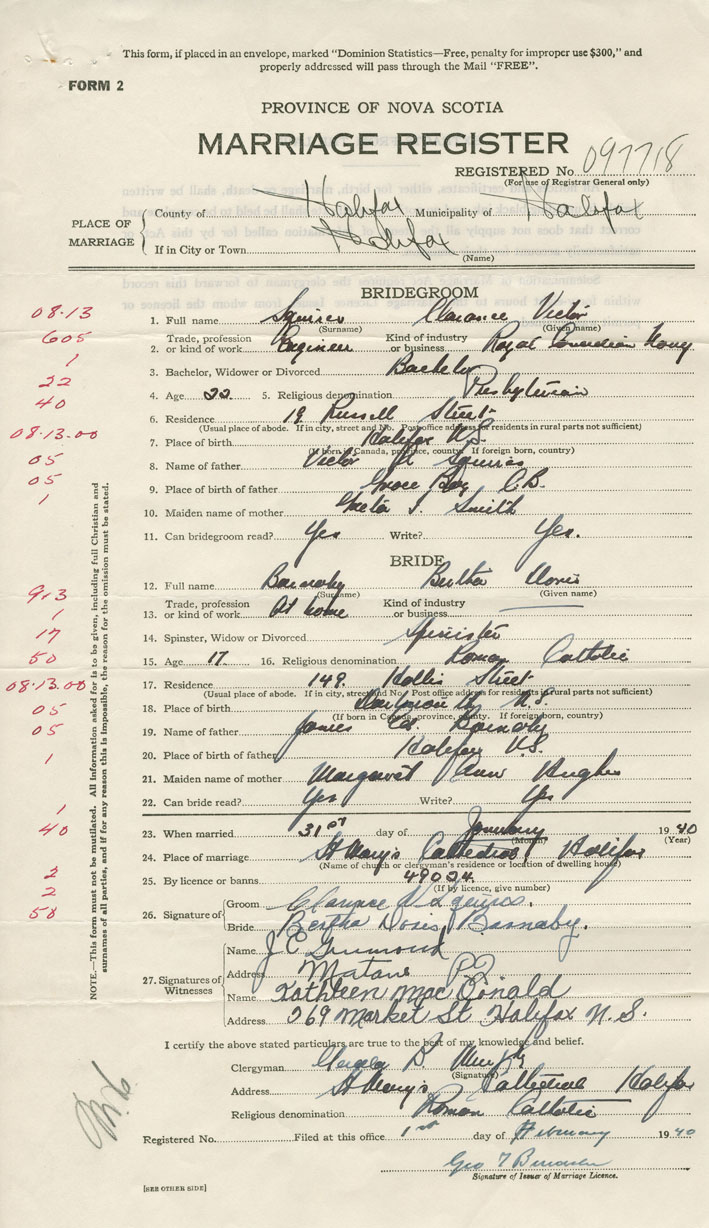 This form, if placed in an envelope, marked "Dominion Statistics—Free, penalty for improper use $300," and
properly addressed will pass through the Mail "FREE".
FORM 2
PROVINCE OF NOVA SCOTIA
MARRIAGE REGISTER
REGISTERED No. 097718
(For use of Registrar General only)
PLACE OF MARRIAGE
County of Halifax Municipality of Halifax
If in City or Town Halifax
(Name)
BRIDEGROOM
08·13
1. Full name Squires Clarance Victor
(Surname) (Given name)
605
2. Trade, profession or kind of work Engineer Kind of industry or business Royal Canadian Navy
1
3. Bachelor, Widower or Divorced Bachelor
22
4. Age 22 5. Religious denomination Presbyterian
40
6. Residence 19 Russell Street
(Usual place of abode. If in city, street and No. Post office address for residents in rural parts not sufficient)
08·13·00
7. Place of birth Halifax N.S.
(If born in Canada, province, county. If foreign born, country)
05
8. Name of father Victor Squires
05
9. Place of birth of father Glace Bay C.B.
1
10. Maiden name of mother Smith
11. Can bridegroom read? Yes Write? Yes.
BRIDE
12. Full name Barnaby Bertha Doris
(Surname) (Given name)
913
13. Trade, profession or kind of work At home Kind of industry or business
1
14. Spinster, Widow or Divorced Spinister
17
15. Age 17 16. Religious denomination Roman Catholic
50
17. Residence 149 Hollis Street
(Usual place of abode. If in city, street and No. Post office address for residents in rural parts not sufficient)
08·13·00
18. Place of birth Dartmouth N.S.
(If born in Canada, province, county. If foreign born, country)
05
19. Name of father James Ed. Barnaby
05
20. Place of birth of father Halifax N.S.
21. Maiden name of mother Margaret Ann Hughes
1
22. Can bride read? Yes Write? Yes
1
23. When married 31st day of January 1940
(Month) (Year)
40
24. Place of marriage St Mary's Cathedral Halifax
(Name of church or clergyman's residence or location of dwelling house)
2
25. By licence or banns 49024
(If by licence, give number)
2
58
26. Signature of
Groom Clarence V Squires.
Bride Bertha Doris Barnaby.
27. Signatures of Witnesses
Name J C
Address Matane P.Q
Name Kathleen Mac Donald
Address 269 Market St Halifax N.S.
I certify the above stated particulars are true to the best of my knowledge and belief.
Clergyman B. Murphy
(Signature)
Address St Mary's Cathedral Halifax
Religious denomination Roman Catholic
Registered No. Filed at this office 1st day of February 1940
Geo T
Signature of Issuer of Marriage Licence.
[SEE OTHER SIDE]
NOTE.—This form must not be mutilated. All information asked for is to be given, including full Christian and
surnames of all parties, and if for any reason this is impossible, the reason for the omission must be stated.